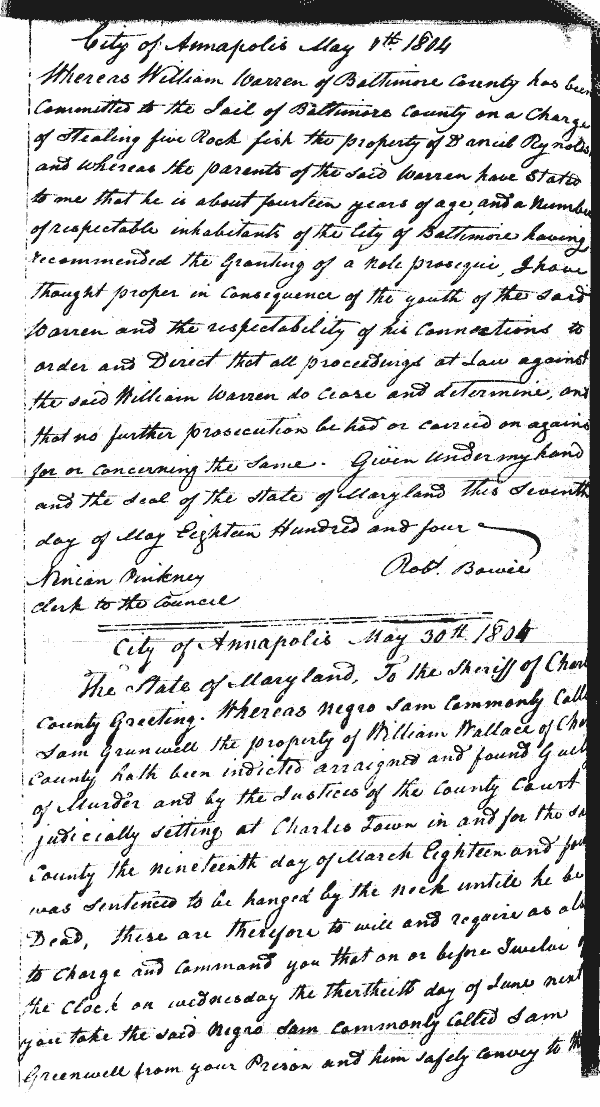 City of Annapolis May 8th 1804
Whereas William Warren of Baltimore County has been
Committed to the Jail of Baltimore County on a Charge
of Stealing five Rock fish the property of Daniel Rynolds
and whereas the parents of the said Warren have Stated
to me that he is about fourteen years of age, and a Number
of respectable inhabitants of the City of Baltimore having
recommended the Granting of a nole prosequi, I have
thought proper in Consequence of the youth of the said
Warren and the respectability of his Connections to
order and Direct that all proceedings at Law against
the said William Warren do Cease and determine, and
that no further prosecution be had or carried on agains
for or concerning the Same. Given Under my hand
and the Seal of the State of Maryland this Seventh
day of May Eighteen Hundred and four
Ninian Pinkney Robt. Bowie
Clerk to the Council
City of Annapolis May 30th 1804
The State of Maryland, To the Sheriff of Char
County Greeting. Whereas Negro Sam Commonly Calle
Sam Grunwell the property of William Wallace of Cha
County hath been indicted arraigned and found Guil
of Murder and by the Justices of the County Court
judicially setting at Charles Town in and for the sa
County the nineteenth day of March Eighteen and fou
was Sentenced to be hanged by the neck untile he be
Dead, these are therefore to will and require as als
to Charge and Command you that on or before Twelve o
the Clock on wednesday the thertheith day of June next
you take the said Negro Sam Commonly Called Sam
Greenwell from your Prison and him safely convey to th